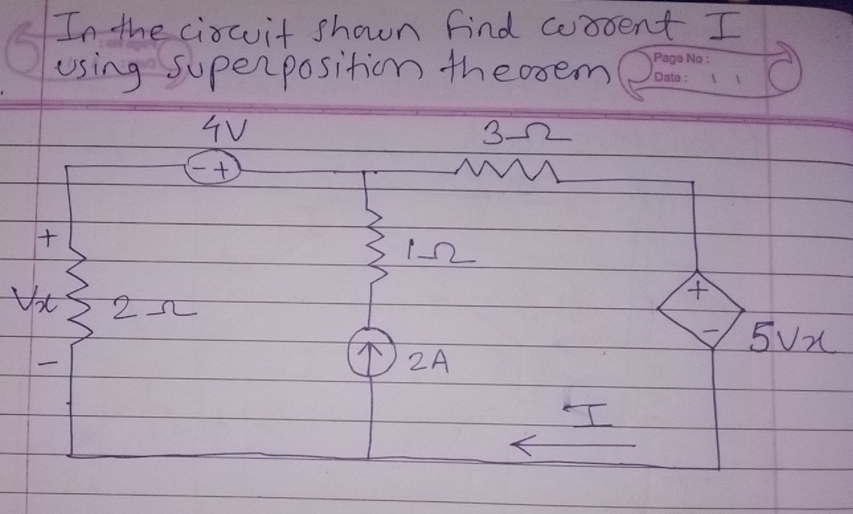 In the circuit shown find current I
using superposition theorem
Page No:
Date:
4V
3Ω
- +
+
Vx
-
2Ω
1Ω
2A
+
-
5Vx
I